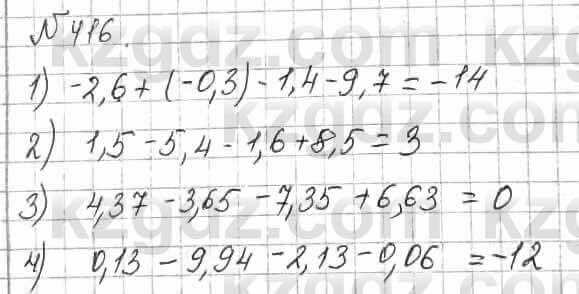 № 416.
1) -2,6 + (-0,3) - 1,4 - 9,7 = -14
2) 1,5 - 5,4 - 1,6 + 8,5 = 3
3) 4,37 - 3,65 - 7,35 + 6,63 = 0
4) 0,13 - 9,94 - 2,13 - 0,06 = -12
kzgdz.com